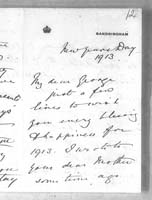 12
SANDRINGHAM
New Years Day
1913
My dear George
Just a few
lines to wish
you every blessing
& happiness for
1913. I wrote to
your dear Mother
some time ago